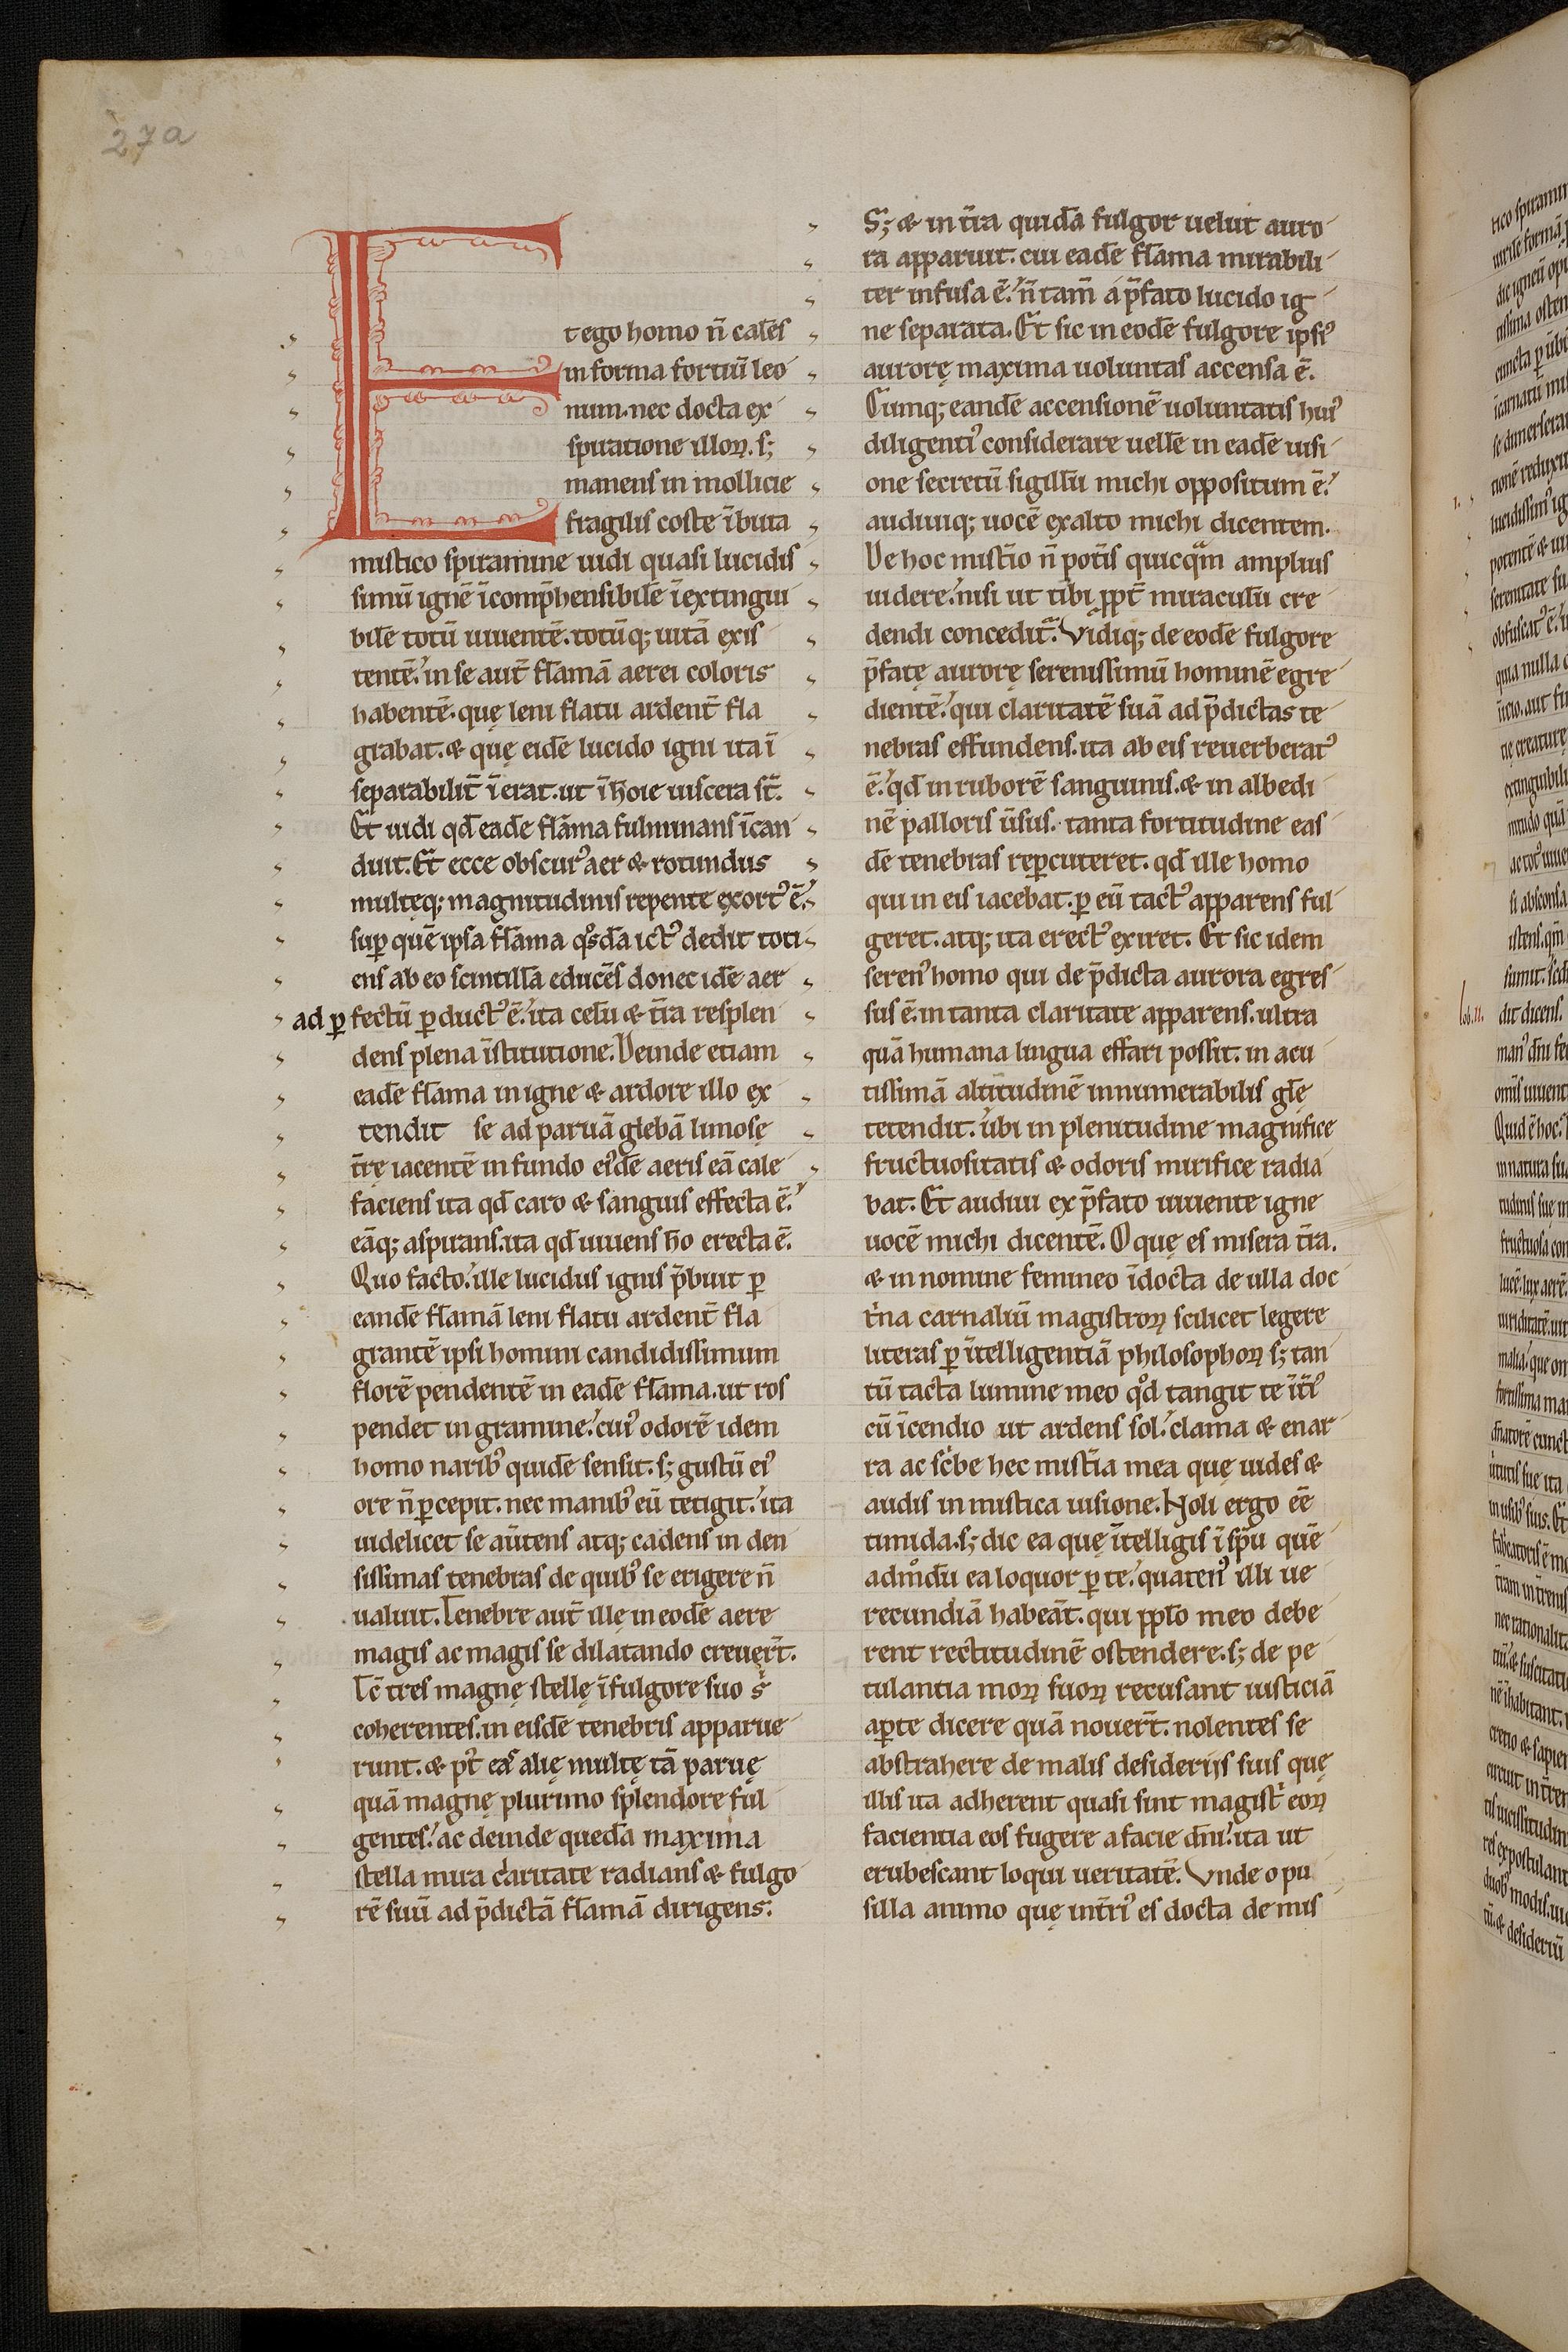 27a
Et ego homo n̄ calēs
in forma fortiū leo
num. nec docta ex
spiratione illoꝝ. sꝫ
manens in mollicie
fragilis coste ībuta
mistico spiramine uidi quasi lucidis
simū ignē īcomp̄hensibilē īextingui
bilē totū uiuentē. totūqꝫ uitā exis
tentē. in se aut̄ flāmā aerei coloris
habentē. quę leni flatu ardent̄ fla
grabat. & quę eidē lucido igni ita ī
separabilit̄ īerat. ut ī hōie uiscera st̄.
Et uidi qd̄ eadē flāma fulminans īcan
duit. Et ecce obscurꝰ aer & rotundus
multęqꝫ magnitudinis repente exortꝰ ē.
suꝑ quē ipsa flāma qͦsdā ictꝰ dedit toti
ens ab eo scintillā educēs donec idē aer
ad ꝑfectū ꝑductꝰ ē. ita celū & t̄ra resplen
dens plena īstitutione. Deinde etiam
eadē flāma in igne & ardore illo ex
tendit se ad paruā glebā limosę
t̄rę iacentē in fundo eiꝰdē aeris eā cale
faciens ita qd̄ caro & sanguis effecta ē.
eāqꝫ aspirans. ita qd̄ uiuens hō erecta ē.
Quo facto. ille lucidus ignis p̄buit ꝑ
eandē flāmā leni flatu ardent̄ fla
grantē ipsi homini candidissimum
florē pendentē in eadē flāma. ut ros
pendet in gramine. cuiꝰ odorē idem
homo naribꝰ quidē sensit. sꝫ gustū eiꝰ
ore n̄ ꝑcepit. nec manibꝰ eū tetigit. ita
uidelicet se aūtens atqꝫ cadens in den
sissimas tenebras de quibꝰ se erigere n̄
ualuit. Tenebre aut̄ ille in eodē aere
magis ac magis se dilatando creuer̄t.
Tc̄ tres magnę stellę ī fulgore suo sͥ
coherentes. in eisdē tenebris apparue
runt. & pꝰt eas alię multę tā paruę
quā magnę plurimo splendore ful
gentes. ac deinde quedā maxima
stella mira claritate radians & fulgo
rē suū ad p̄dictā flāmā dirigens.
Sꝫ & in t̄ra quidā fulgor uelut auro
ra apparuit. cui eadē flāma mirabili
ter infusa ē. n̄ tam̄ a p̄fato lucido ig
ne separata. Et sic in eodē fulgore ipsiꝰ
aurorę maxima uoluntas accensa ē.
Cumqꝫ eandē accensionē uoluntatis huiꝰ
diligentiꝰ considerare uellē in eadē uisi
one secretū sigillū michi oppositum ē.
audiuiqꝫ uocē exalto michi dicentem.
De hoc mist̄io n̄ pot̄is quicqͣm amplius
uidere. nisi ut tibi ꝓpt̄ miraculū cre
dendi concedit̄. Vidiqꝫ de eodē fulgore
p̄fatę aurorę serenissimū hominē egre
dientē. qui claritatē suā ad p̄dictas te
nebras effundens. ita ab eis reuerberatꝰ
ē. qd̄ in ruborē sanguinis. & in albedi
nē palloris ūsus. tanta fortitudine eas
dē tenebras reꝑcuteret. qd̄ ille homo
qui in eis iacebat. ꝑ eū tactꝰ apparens ful
geret. atqꝫ ita erectꝰ exiret. Et sic idem
serenꝰ homo qui de p̄dicta aurora egres
sus ē. in tanta claritate apparens. ultra
quā humana lingua effari possit. in acu
tissimā altitudinē innumerabilis glę̄
tetendit. ubi in plenitudine magnifice
fructuositatis & odoris mirifice radia
bat. Et audiui ex p̄fato uiuente igne
uocē michi dicentē. O quę es misera t̄ra.
& in nomine femineo īdocta de ulla doc
tͥna carnaliū magistroꝝ scilicet legere
literas ꝑ ītelligentiā philosophoꝝ sꝫ tan
tū tacta lumine meo qͦd tangit te īt̄iꝰ
cū īcendio ut ardens sol. clama & enar
ra ac scͥbe hec mist̄ia mea quę uides &
audis in mistica uisione. Noli ergo eē
timida. sꝫ dic ea quę ītelligis ī sp̄u quē
admͦdū ea loquor ꝑ te. quatenꝰ illi ue
recundiā habeāt. qui ꝓplo meo debe
rent rectitudinē ostendere. sꝫ de pe
tulantia moꝝ suoꝝ recusant iusticiā
aꝑte dicere quā nouer̄t. nolentes se
abstrahere de malis desiderijs suis quę
illis ita adherent quasi sint magist̄ eoꝝ
facientia eos fugere a facie dn̄i. ita ut
erubescant loqui ueritatē. Vnde o pu
silla animo quę int̄riꝰ es docta de mis